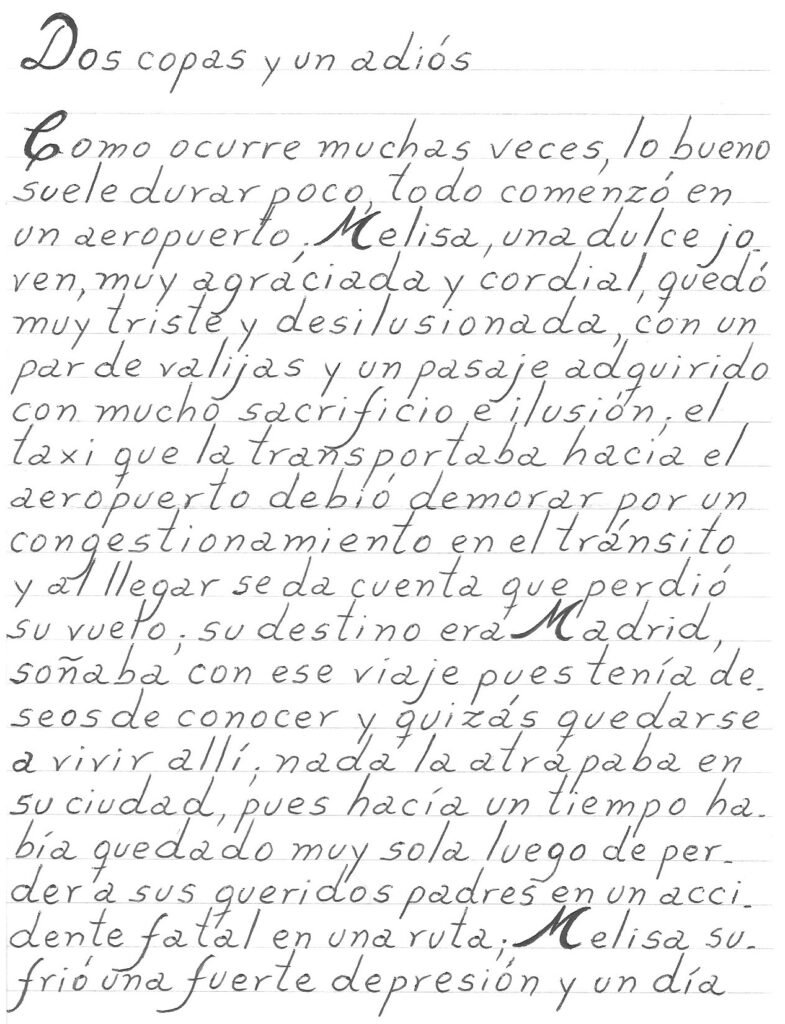 Dos copas y un adiós
Como ocurre muchas veces, lo bueno
suele durar poco, todo comenzó en
un aeropuerto. Melisa, una dulce jo-
ven, muy agraciada y cordial, quedó
muy triste y desilusionada, con un
par de valijas y un pasaje adquirido
con mucho sacrificio e ilusión; el
taxi que la transportaba hacia el
aeropuerto debió demorar por un
congestionamiento en el tránsito
y al llegar se da cuenta que perdió
su vuelo; su destino era Madrid,
soñaba con ese viaje pues tenía de-
seos de conocer y quizás quedarse
a vivir allí; nada la atrapaba en
su ciudad, pues hacía un tiempo ha-
bía quedado muy sola luego de per-
der a sus queridos padres en un acci-
dente fatal en una ruta; Melisa su-
frió una fuerte depresión y un día